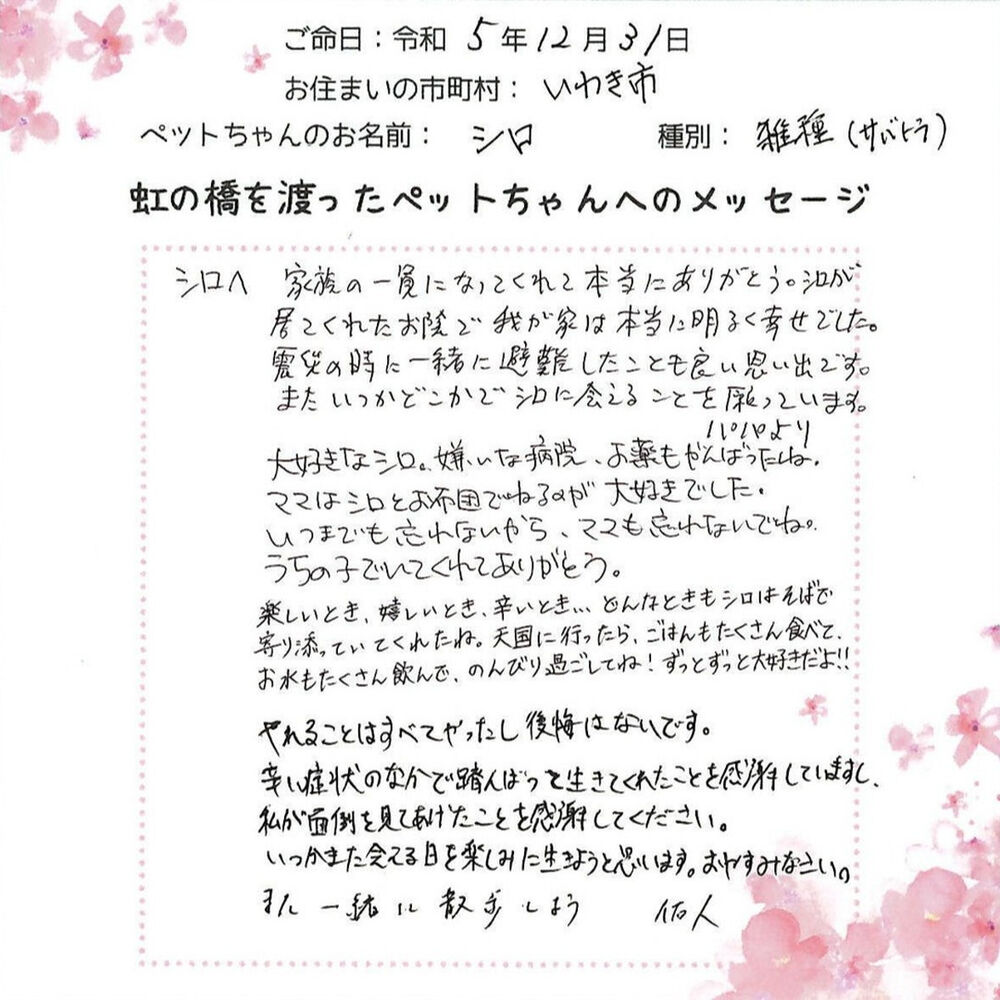 ご命日：令和 5年12月31日
お住まいの市町村： いわき市
ペットちゃんのお名前： シロ 種別： 雑種（サバトラ）
虹の橋を渡ったペットちゃんへのメッセージ
シロへ 家族の一員になってくれて本当にありがとう。シロが
居てくれたお陰で我が家は本当に明るく幸せでした。
震災の時に一緒に避難したことも良い思い出です。
またいつかどこかでシロに会えることを願っています。
パパより
大好きなシロ。嫌いな病院、お薬もがんばったね。
ママはシロとお布団でねるのが大好きでした。
いつまでも忘れないから、ママも忘れないでね。
うちの子でいてくれてありがとう。
楽しいとき、嬉しいとき、辛いとき… どんなときもシロはそばで
寄り添っていてくれたね。天国に行ったら、ごはんもたくさん食べて、
お水もたくさん飲んで、のんびり過ごしてね！ずっとずっと大好きだよ!!
やれることはすべてやったし後悔はないです。
辛い症状のなかで踏んばって生きてくれたことを感謝していますし、
私が面倒を見てあげたことを感謝してください。
いつかまた会える日を楽しみに生きようと思います。おやすみなさい。
また 一緒に 散歩しよう 佑人